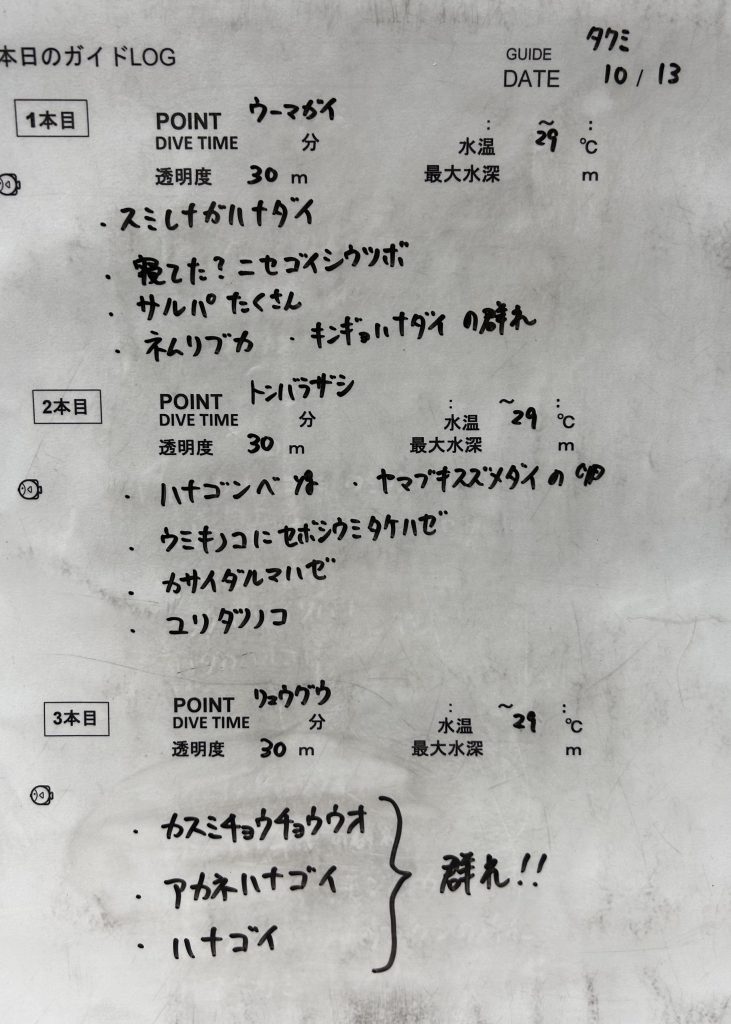 本日のガイドLOG
GUIDE タクミ
DATE 10 / 13
1本目 POINT ウーマガイ
DIVE TIME 分 : 〜 :
水温 29 ℃
透明度 30 m 最大水深 m
・スミレナガハナダイ
・寝てた?ニセゴイシウツボ
・サルパ たくさん
・ネムリブカ ・キンギョハナダイ の群れ
2本目 POINT トンバラザシ
DIVE TIME 分 : 〜 :
水温 29 ℃
透明度 30 m 最大水深 m
・ハナゴンベ ・ヤマブキスズメダイの卵
・ウミキノコにセボシウミタケハゼ
・カサイダルマハゼ
・ユリタツノコ
3本目 POINT リュウグウ
DIVE TIME 分 : 〜 :
水温 29 ℃
透明度 30 m 最大水深 m
・カスミチョウチョウウオ
・アカネハナゴイ
・ハナゴイ
群れ!!